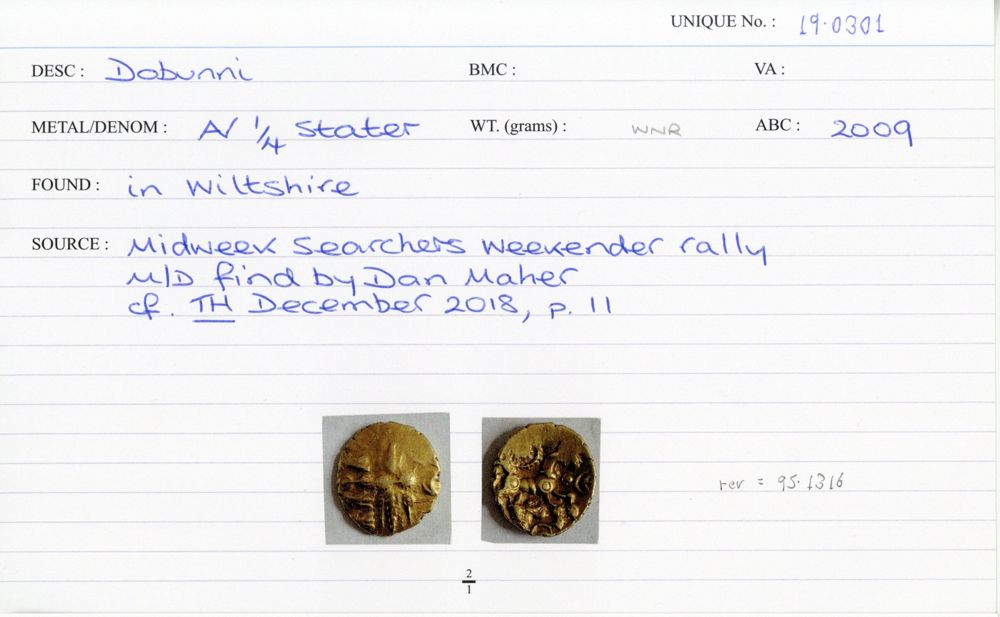 UNIQUE No. : 19.0301
DESC : Dobunni BMC : VA :
METAL/DENOM : A/ 1/4 stater WT. (grams) : WNR ABC : 2009
FOUND : in Wiltshire
SOURCE : Midweek Searchers weekender rally
M/D find by Dan Maher
cf. TH December 2018, p. 11
rev = 95.1316
2
1